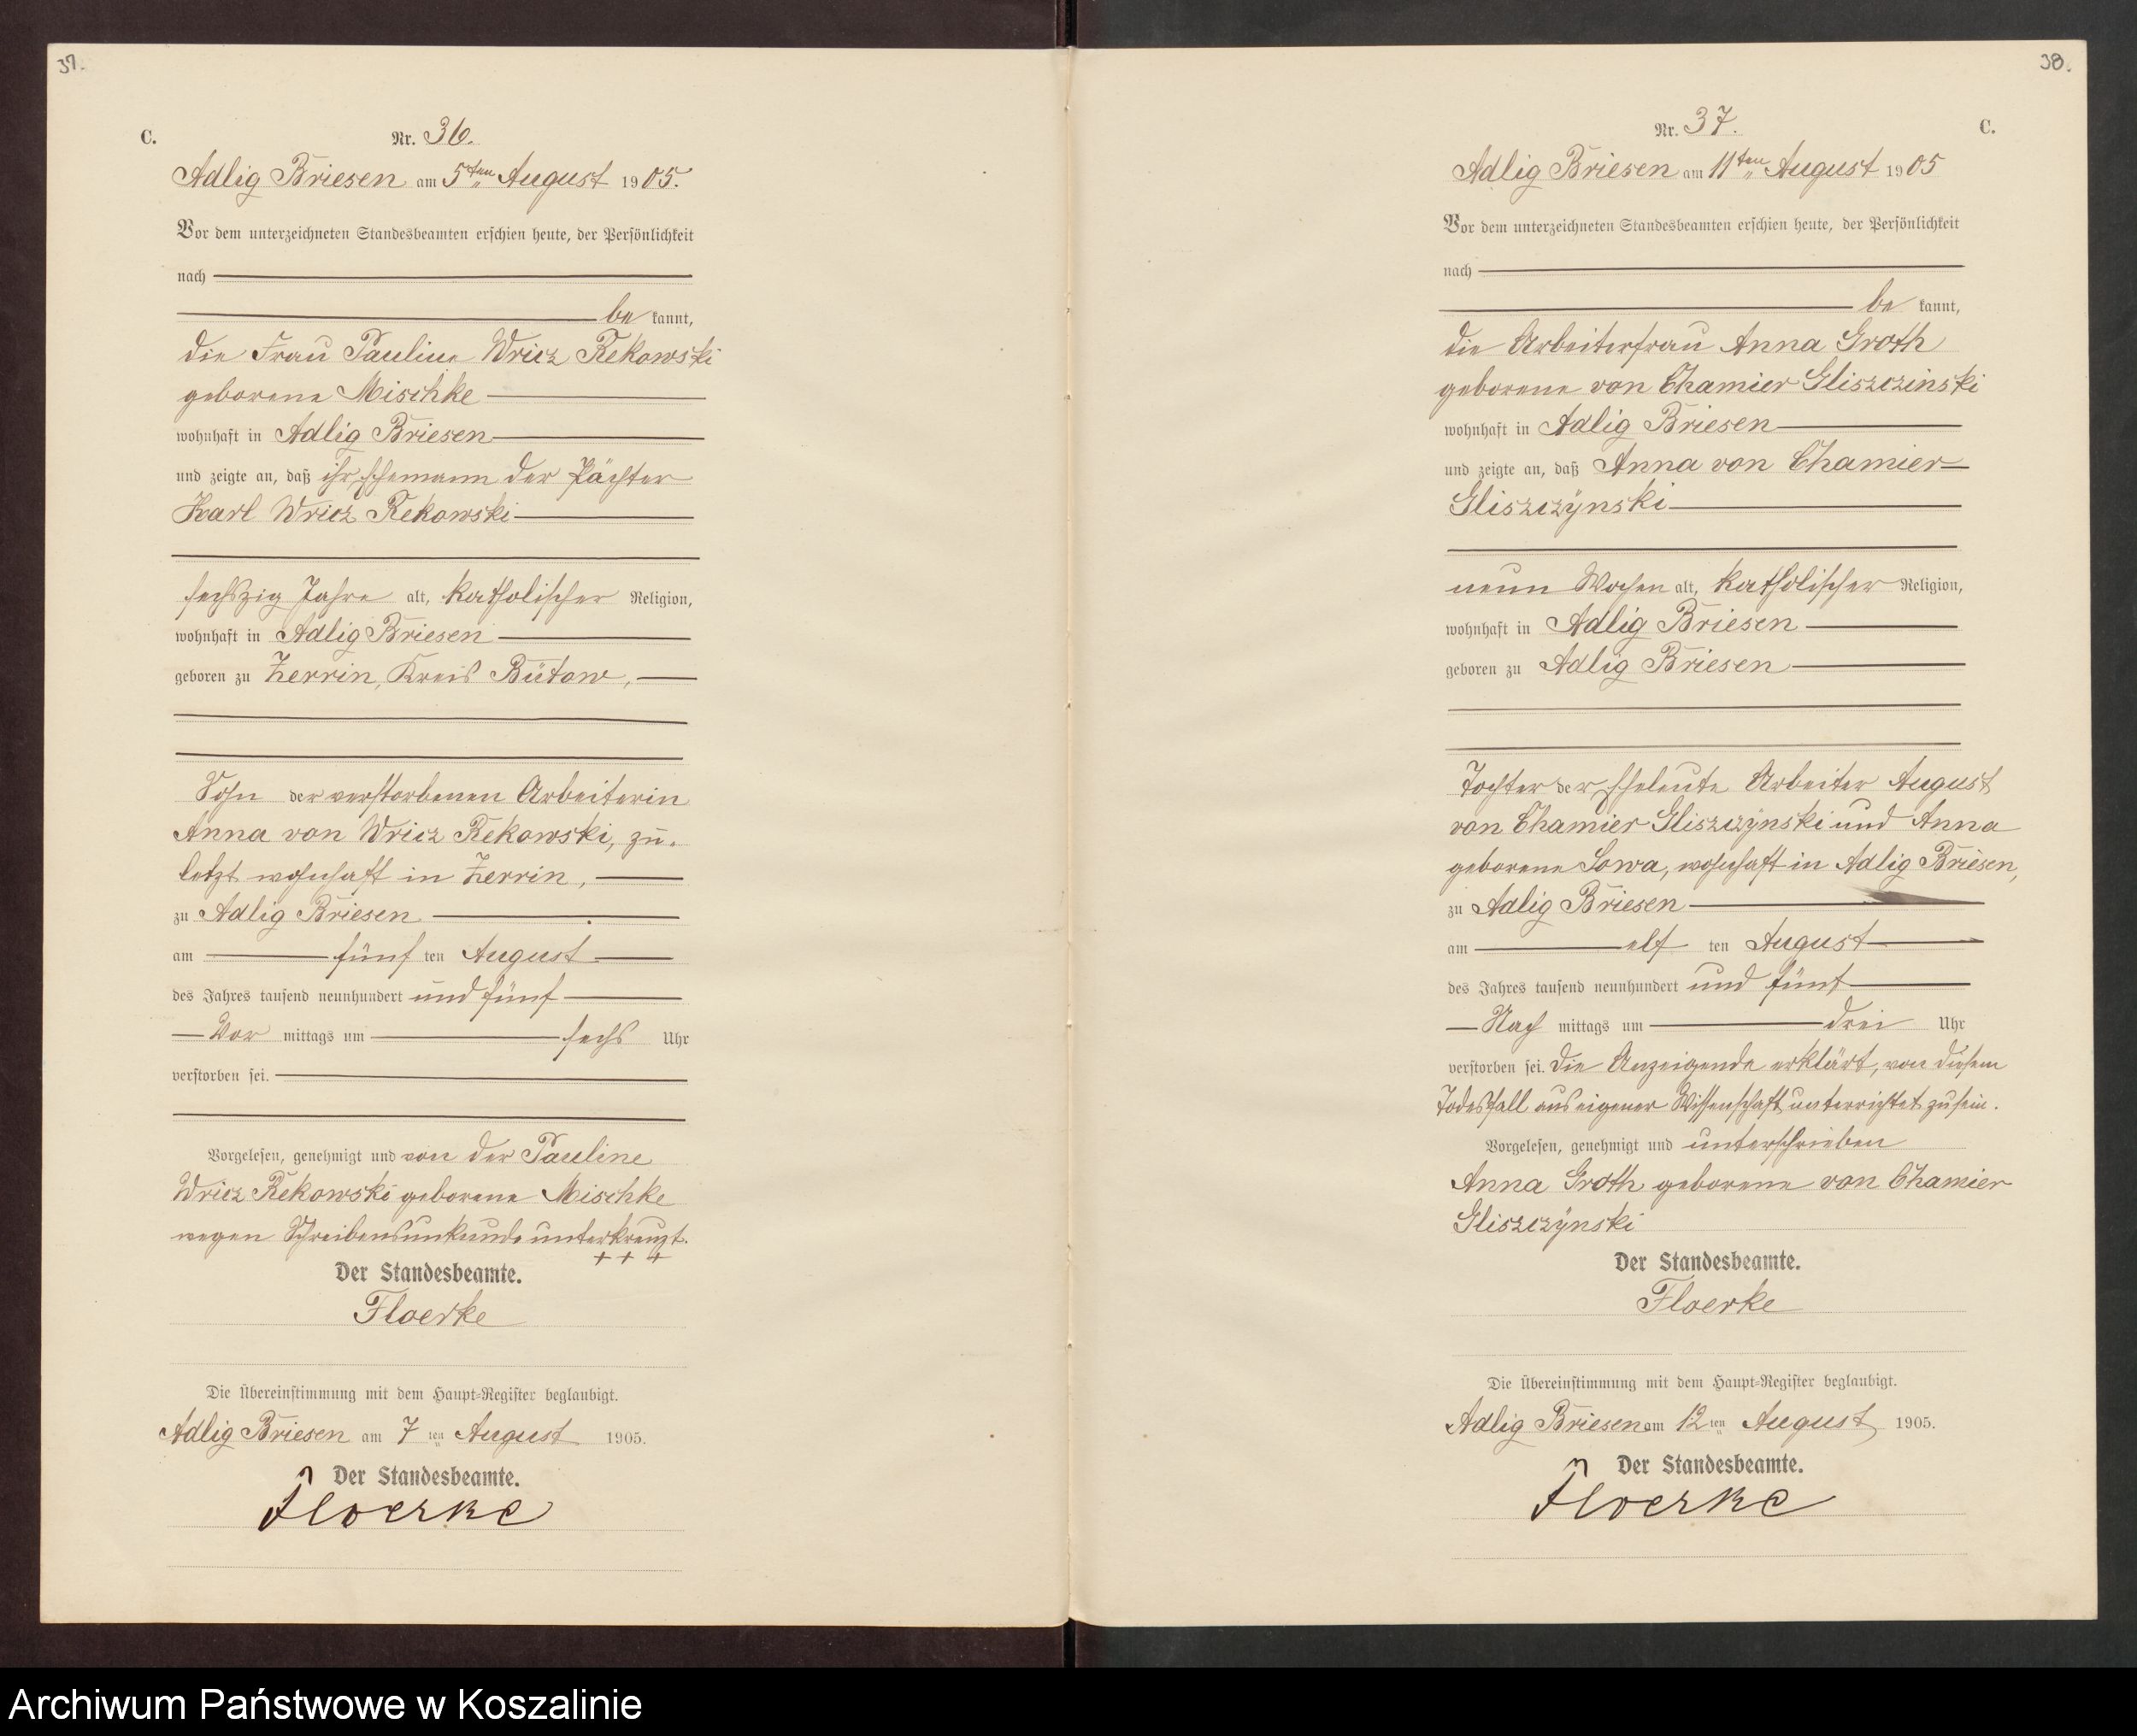 37.
C.
Nr. 36.
Adlig Briesen am 5ten August 1905.
Vor dem unterzeichneten Standesbeamten erschien heute, der Persönlichkeit
nach
be kannt,
die Frau Pauline Wricz Rekowski
geborene Mischke
wohnhaft in Adlig Briesen
und zeigte an, daß ihr Ehemann der Pächter
Karl Wricz Rekowski
sechszig Jahre alt, katholischer Religion,
wohnhaft in Adlig Briesen
geboren zu Zerrin, Kreis Bütow,
Sohn der verstorbenen Arbeiterin
Anna von Wricz Rekowski, zu-
letzt wohnhaft in Zerrin,
zu Adlig Briesen
am fünf ten August
des Jahres tausend neunhundert und fünf
Vor mittags um sechs Uhr
verstorben sei.
Vorgelesen, genehmigt und von der Pauline
Wricz Rekowski geborene Mischke
wegen Schreibensunkunde unterkreuzt.
+ + +
Der Standesbeamte.
Floerke
Die Übereinstimmung mit dem Haupt-Register beglaubigt.
Adlig Briesen am 7 ten August 1905.
Der Standesbeamte.
Floerke
38.
Nr. 37.
C.
Adlig Briesen am 11ten August 1905
Vor dem unterzeichneten Standesbeamten erschien heute, der Persönlichkeit
nach
be kannt,
die Arbeiterfrau Anna Groth
geborene von Chamier Gliszczinski
wohnhaft in Adlig Briesen
und zeigte an, daß Anna von Chamier
Gliszczÿnski
neun Wochen alt, katholischer Religion,
wohnhaft in Adlig Briesen
geboren zu Adlig Briesen
Tochter der Eheleute Arbeiter August
von Chamier Gliszczÿnski und Anna
geborene Sowa, wohnhaft in Adlig Briesen,
zu Adlig Briesen
am elf ten August
des Jahres tausend neunhundert und fünf
Nach mittags um drei Uhr
verstorben sei. Die Anzeigende erklärt, von diesem
Todesfall aus eigener Wissenschaft unterrichtet zu sein.
Vorgelesen, genehmigt und unterschrieben
Anna Groth geborene von Chamier
Gliszczÿnski
Der Standesbeamte.
Floerke
Die Übereinstimmung mit dem Haupt-Register beglaubigt.
Adlig Briesen am 12 ten August 1905.
Der Standesbeamte.
Floerke
Archiwum Państwowe w Koszalinie